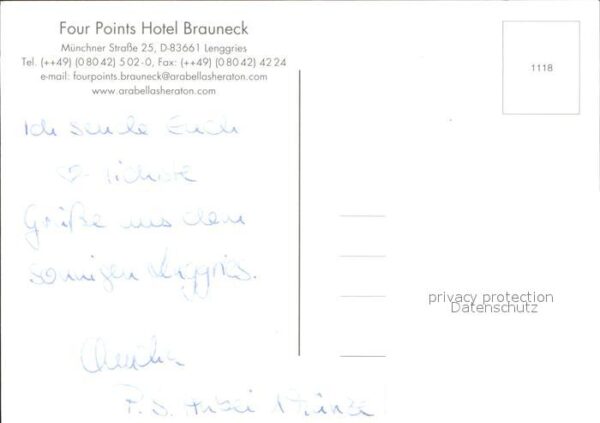 Four Points Hotel Brauneck
Münchner Straße 25, D-83661 Lenggries
Tel. (++49) (0 80 42) 5 02-0, Fax: (++49) (0 80 42) 42 24
e-mail: fourpoints.brauneck@arabellasheraton.com
www.arabellasheraton.com
1118
Ich sende Euch
♡-lichste
Grüße aus dem
sonnigen Lenggries.
P.S.
privacy protection
Datenschutz